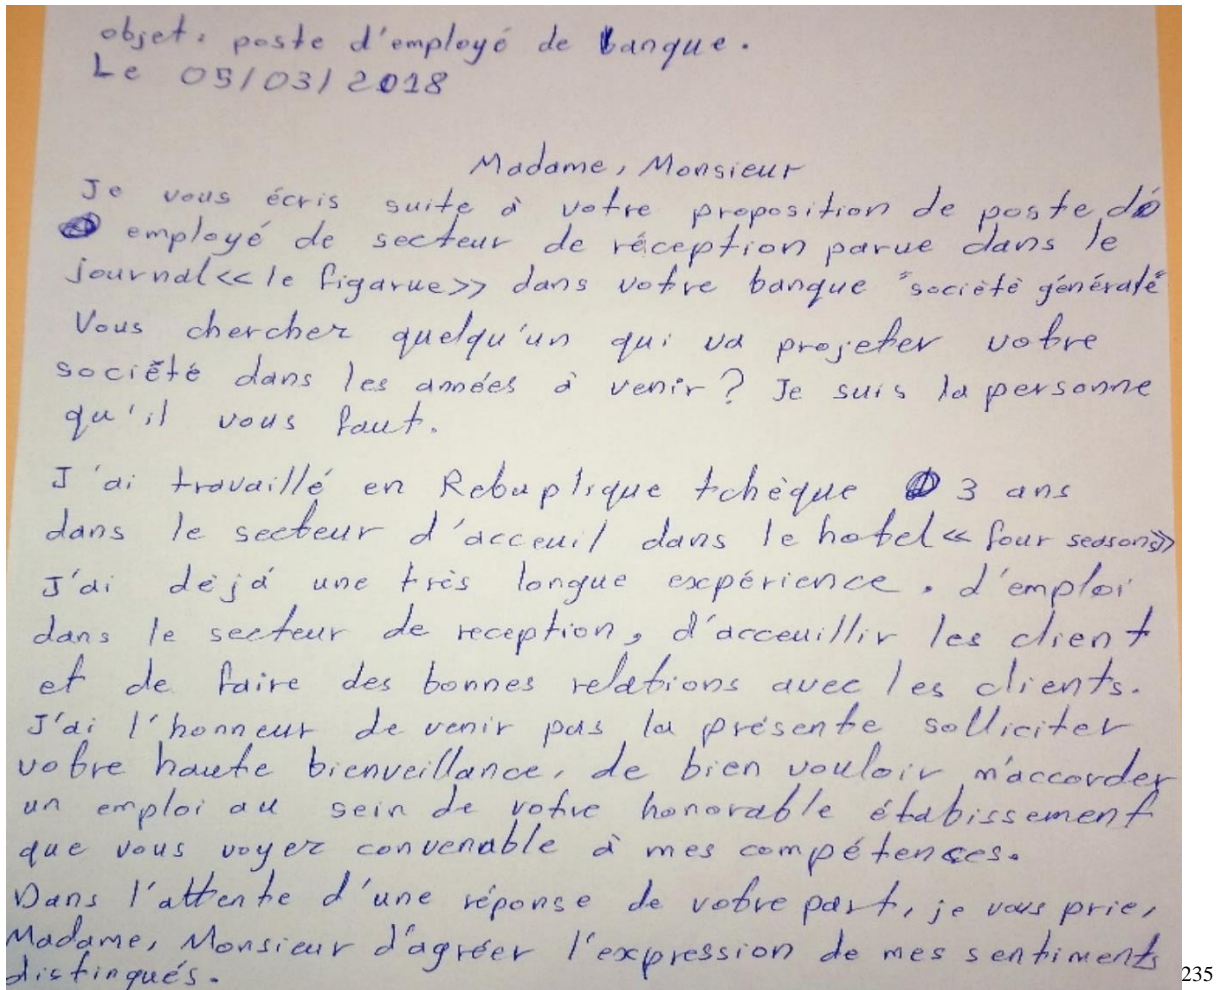 objet: poste d'employé de banque.
Le 05/03/2018
Madame, Monsieur
Je vous écris suite à votre proposition de poste de
employé de secteur de réception parue dans le
journal << le figarue >> dans votre banque "société générale"
Vous chercher quelqu'un qui va projeter votre
société dans les années à venir? Je suis la personne
qu'il vous faut.
J'ai travaillé en Rebuplique tchèque 3 ans
dans le secteur d'acceuil dans le hotel << four seasons >>
J'ai dèjá une très longue expérience. d'emploi
dans le secteur de reception, d'acceuillir les client
et de faire des bonnes relations avec les clients.
J'ai l'honneur de venir pas la présente solliciter
votre haute bienveillance, de bien vouloir m'accorder
un emploi au sein de votre honorable étabissement
que vous voyez convenable à mes compétences.
Dans l'attente d'une réponse de votre part, je vous prie,
Madame, Monsieur d'agréer l'expression de mes sentiments
distingués.
235